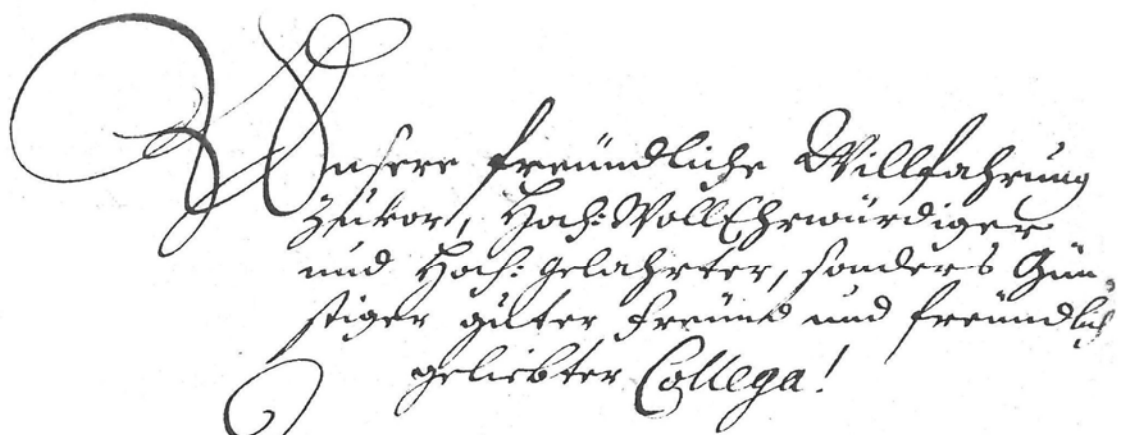 Unsere freündliche Willfahrung
Zuvor, Hoch: WollEhrwürdiger
und Hoch: gelahrter, sonders Gün„
stiger guter freünd und freündlich
geliebter Collega!